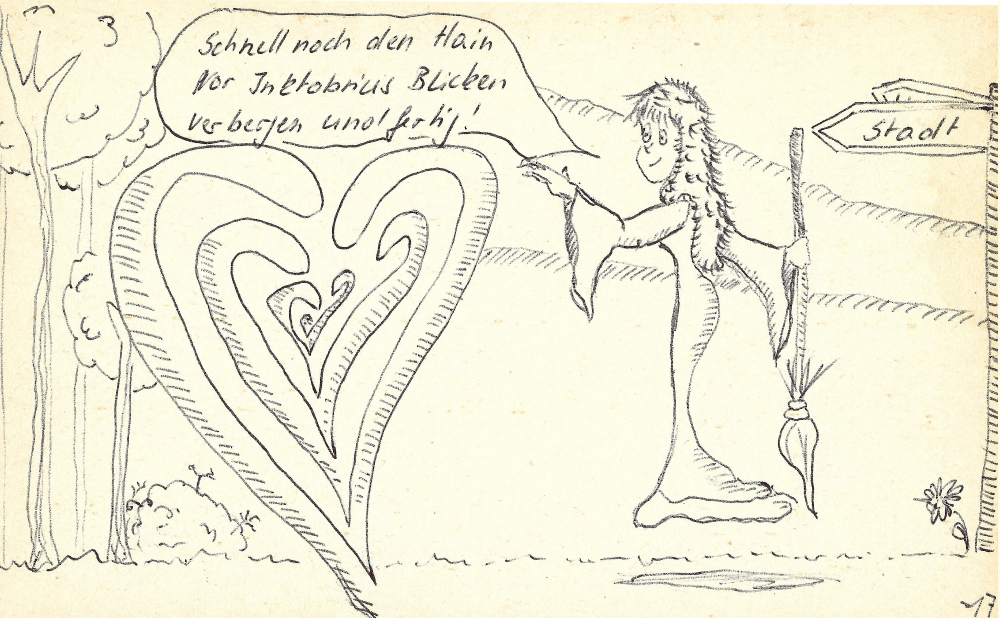 Schnell noch den Hain
Vor Inktobrius Blicken
verbergen und fertig!
Stadt
17